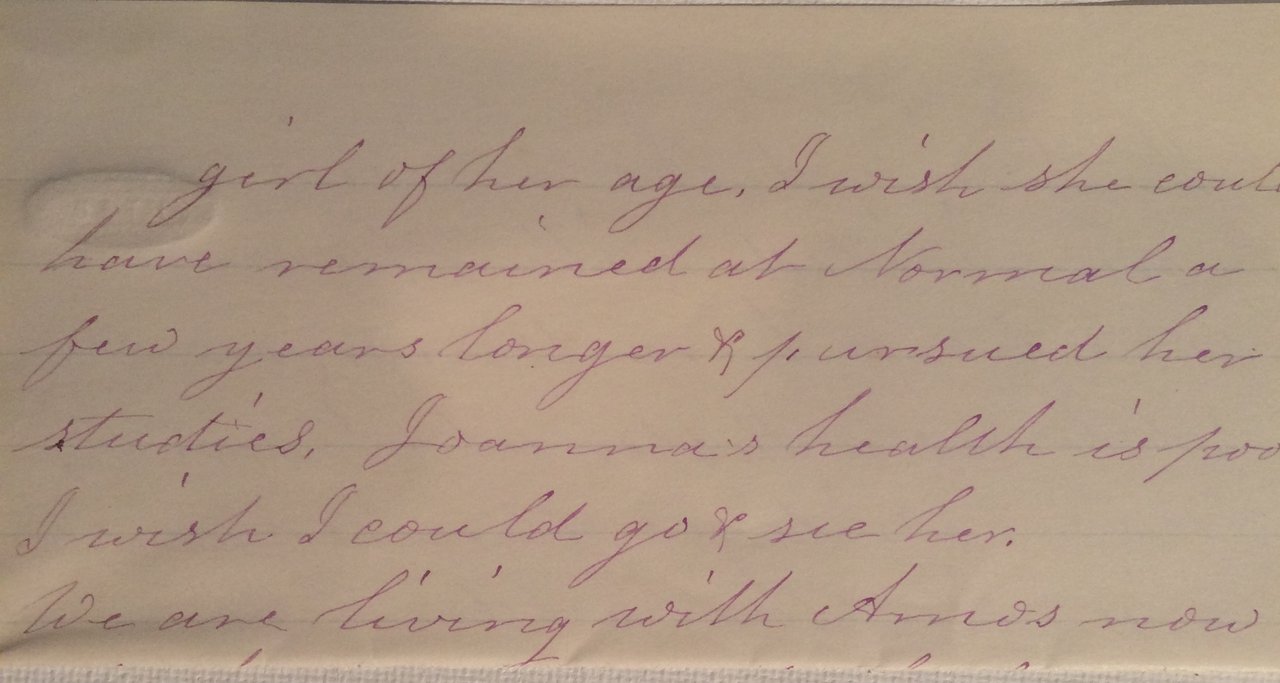 girl of her age, I wish she coul
have remained at Normal a
few years longer & pursued her
studies, Joanna's health is poo
I wish I could go & see her.
We are living with Amos now